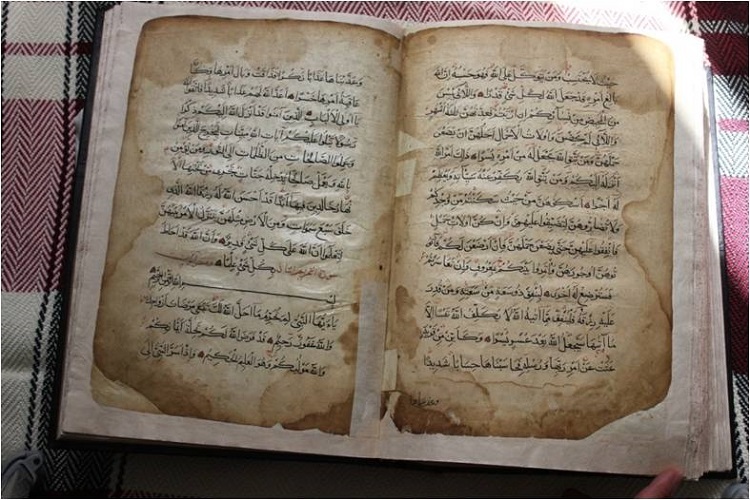 حيث لا يحتسب ومن يتوكل على الله فهو حسبه ان الله
بالغ امره قد جعل الله لكل شئ قدرا واللائي يئسن
من المحيض من نسائكم ان ارتبتم فعدتهن ثلثة اشهر
واللائي لم يحضن واولات الاحمال اجلهن ان يضعن
حملهن ومن يتق الله يجعل له من امره يسرا ذلك امر الله
انزله اليكم ومن يتق الله يكفر عنه سيئاته ويعظم
له اجرا اسكنوهن من حيث سكنتم من وجدكم
ولا تضاروهن لتضيقوا عليهن وان كن اولات حمل
فانفقوا عليهن حتى يضعن حملهن فان ارضعن لكم فآ
توهن اجورهن وأتمروا بينكم بمعروف وان تعاسرتم
فسترضع له اخرى لينفق ذو سعة من سعته ومن قدر
عليه رزقه فلينفق مما آتيه الله لا يكلف الله نفسا الا
ما آتيها سيجعل الله بعد عسر يسرا وكاين من قرية
عتت عن امر ربها ورسله فحاسبناها حسابا شديدا
وعذبناها
وعذبناها عذابا نكرا فذاقت وبال امرها وكان
عاقبة امرها خسرا اعد الله لهم عذابا شديدا فاتقوا الله
يا اولي الالباب الذين آمنوا قد انزل الله اليكم ذكرا
رسولا يتلوا عليكم آيات الله مبينات ليخرج الذين آمنوا
وعملوا الصالحات من الظلمات الى النور ومن يؤمن
بالله ويعمل صالحا يدخله جنات تجري من تحتها الا
نهار خالدين فيها ابدا قد احسن الله له رزقا الله الذي
خلق سبع سموات ومن الارض مثلهن يتنزل الامر بينهن
لتعلموا ان الله على كل شئ قدير وان الله قد احاط
بكل شئ علما
بسم الله الرحمن الرحيم
يا ايها النبي لم تحرم ما احل الله لك تبتغي مرضات ازواجك
والله غفور رحيم قد فرض الله لكم تحلة ايمانكم
والله موليكم وهو العليم الحكيم واذ اسر النبي الى